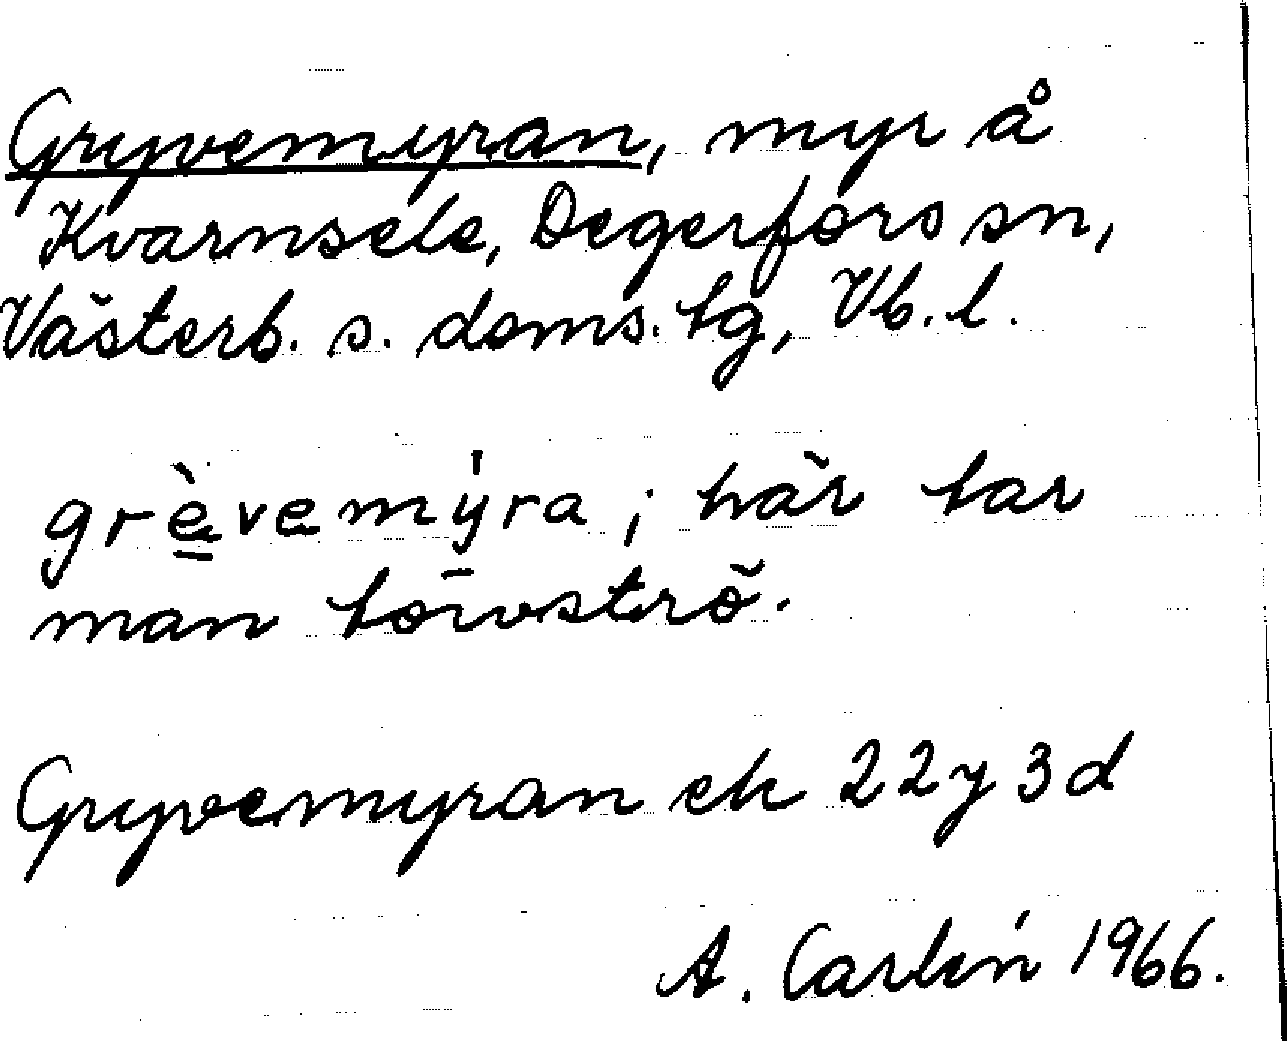 Gryvemyran, myr å
Kvarnsele, Degerfors sn,
Västerb. s. doms. tg, Vb. l.
grèvemýra; här tar
man törvströ.
Gryvemyran ek 22y 3d
A. Carlén 1966.